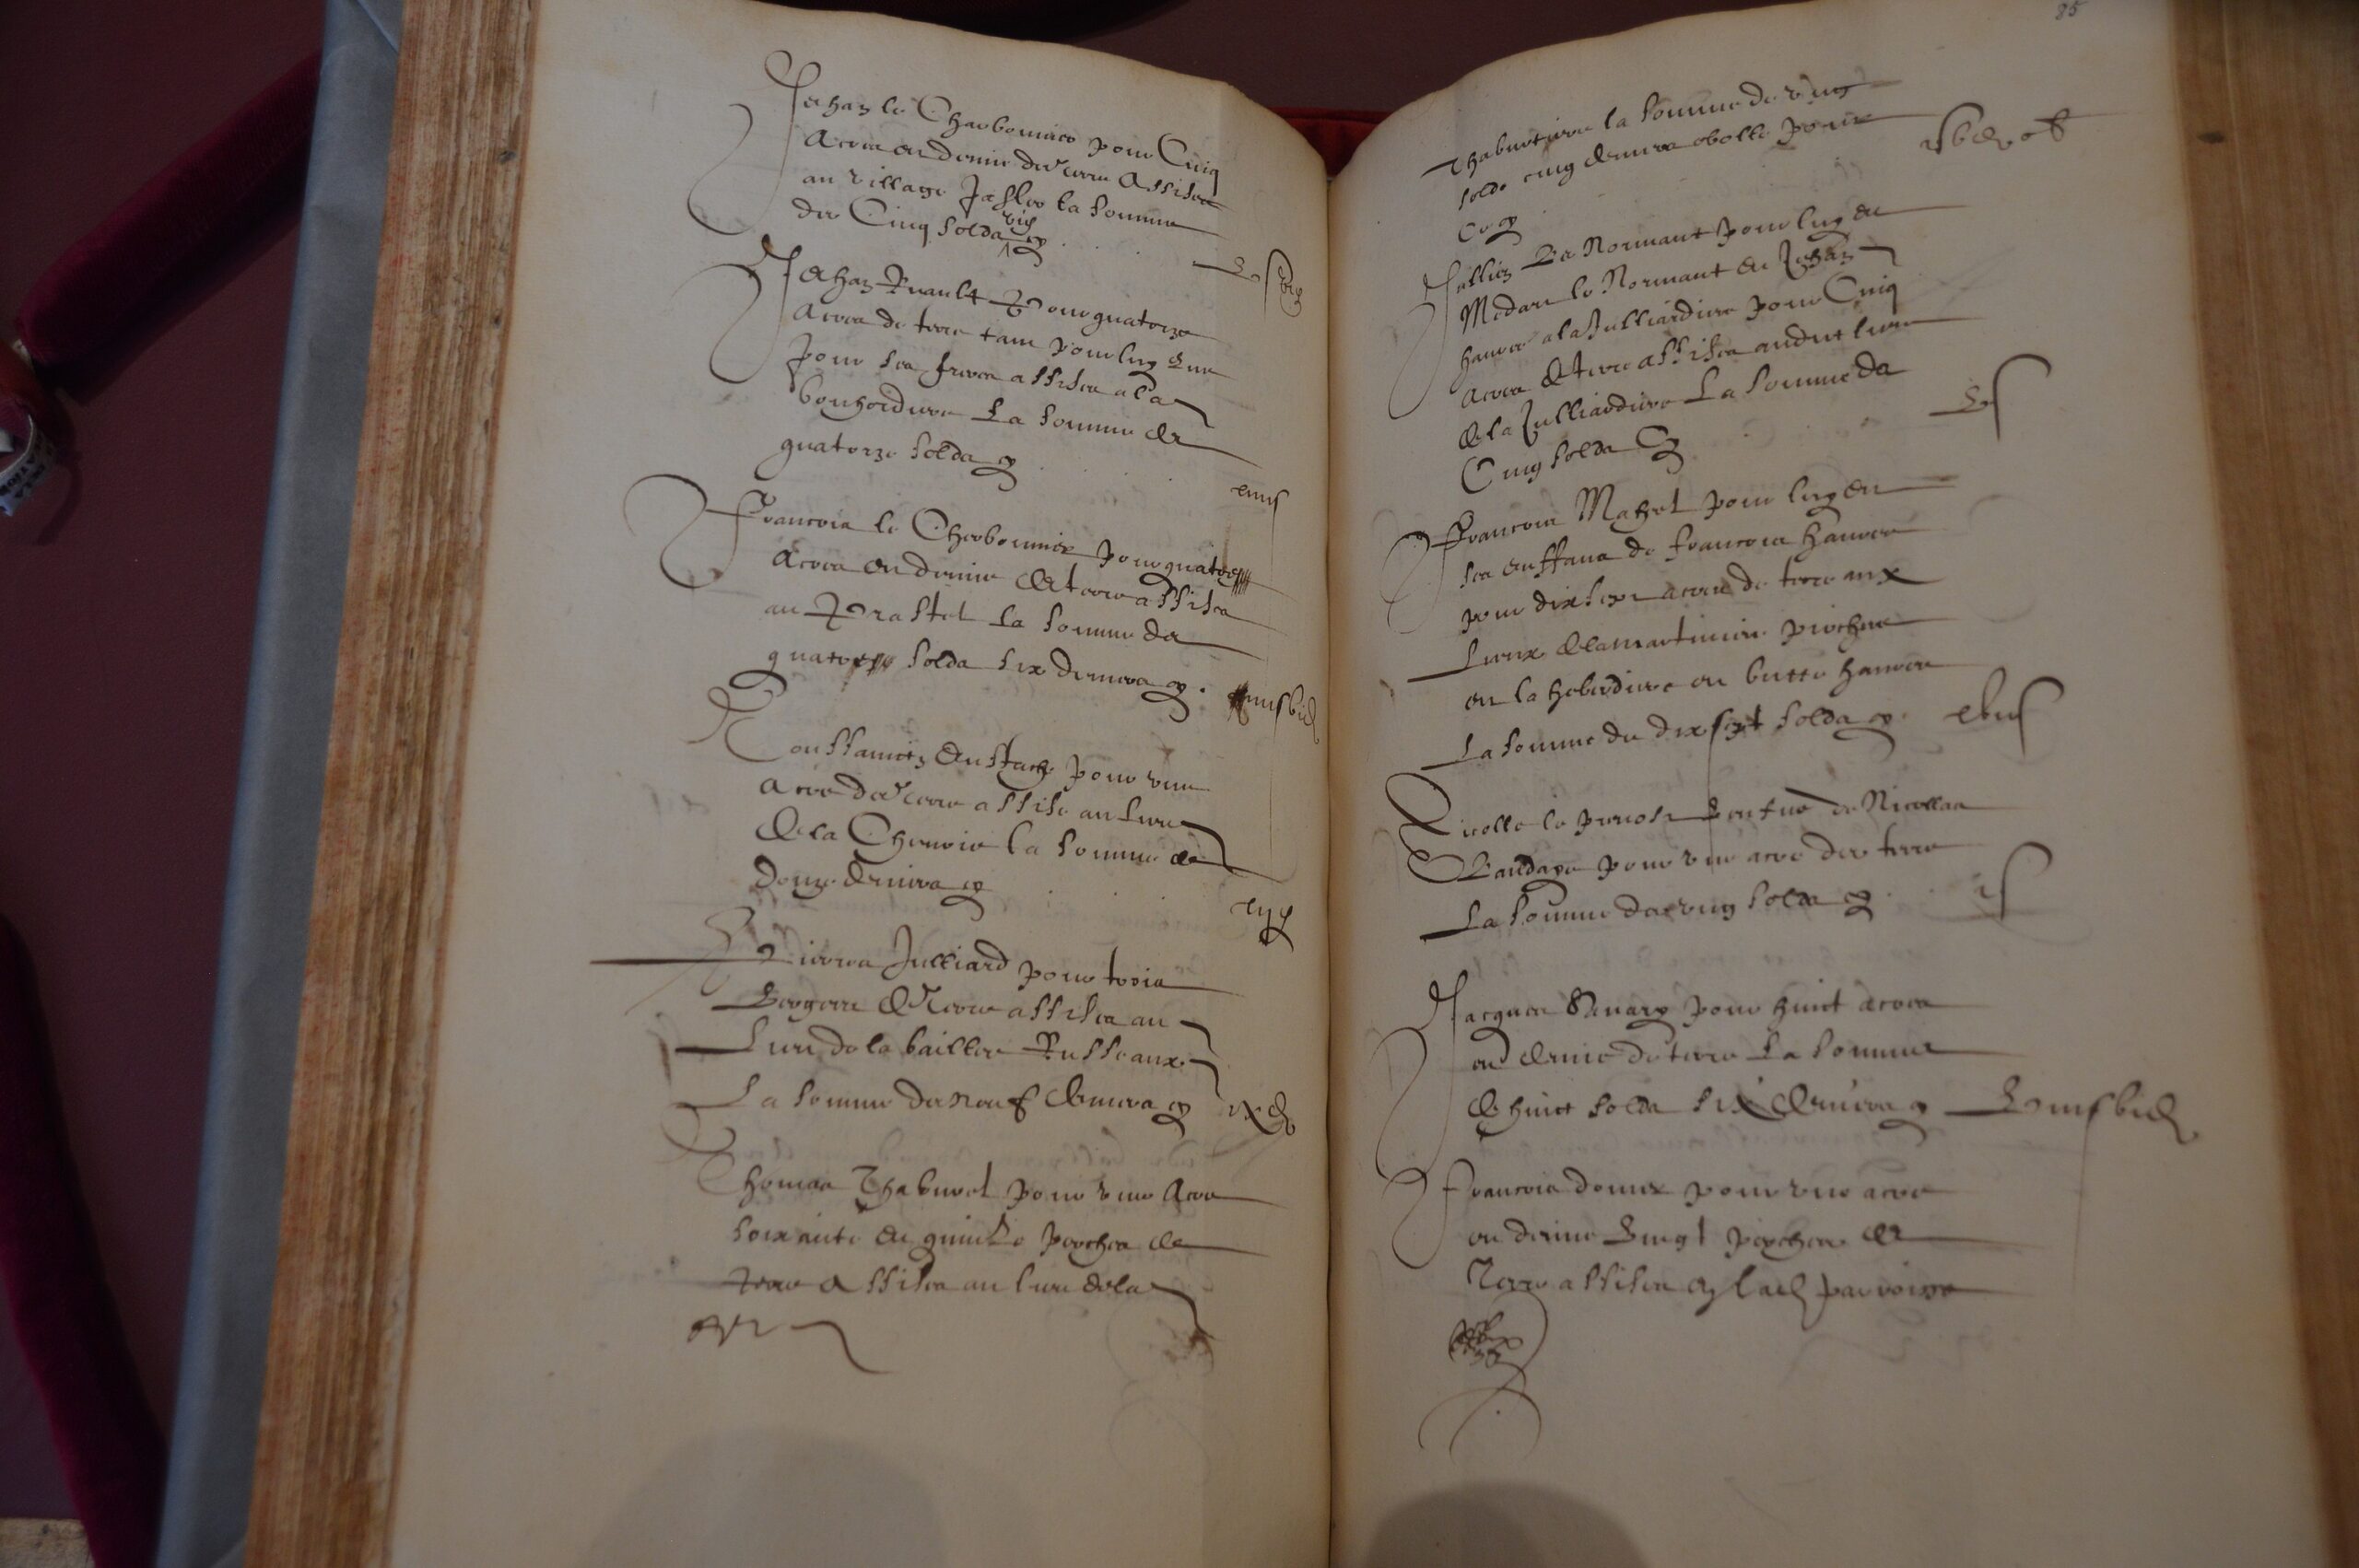 Jehan le Charbonnier pour Cinq
acres et demie de terre assises
au village la somme
de Cinq solz vi d
v s vi d
Jehan Ruault pour quatorze
acres de terre tant pour luy que
pour ses freres assises a la
bouhordiere La somme de
quatorze solz
xiiii s
Francois le Cherbonnier pour quatorze
acres et demie de terre assises
au Prastel La somme de
quatorze solz six deniers
xiiii s vi d
Eustache pour une
acre de terre assise au lieu
de la la somme de
douze deniers
xii d
Pierres Julliard pour trois
vergees de terre assises au
Lieu de la baillee Russeaux
La somme de neuf deniers ix d
Thomas Thaburel pour une acre
soixante et quinze perches de
terre assises au lieu de la
85
Thaburtiere la somme de ung
solz cinq deniers obolle pour
i s v d ob
Jullien Le Normant pour luy et
Medart le Normant et Jehan
hamon a la Julliardiere pour Cinq
acres de terre assises audict lieu
de la Julliardiere La somme de
Cinq solz
v s
Francois Mahet pour luy et
ses enffans de francois hamon
pour dix sept acres de terre aux
Lieux de la martiniere
en la heberdiere ou butte hamon
La somme de dix sept solz xvii s
Nicolle le prevost de Nicollas
pour une acre de terre
La somme de ung solz i s
Jacques pour huict acres
et demie de terre La somme
de huict solz six deniers viii s vi d
Francois pour une acre
et demie vingt perches de
Terre assises en lad parroisse